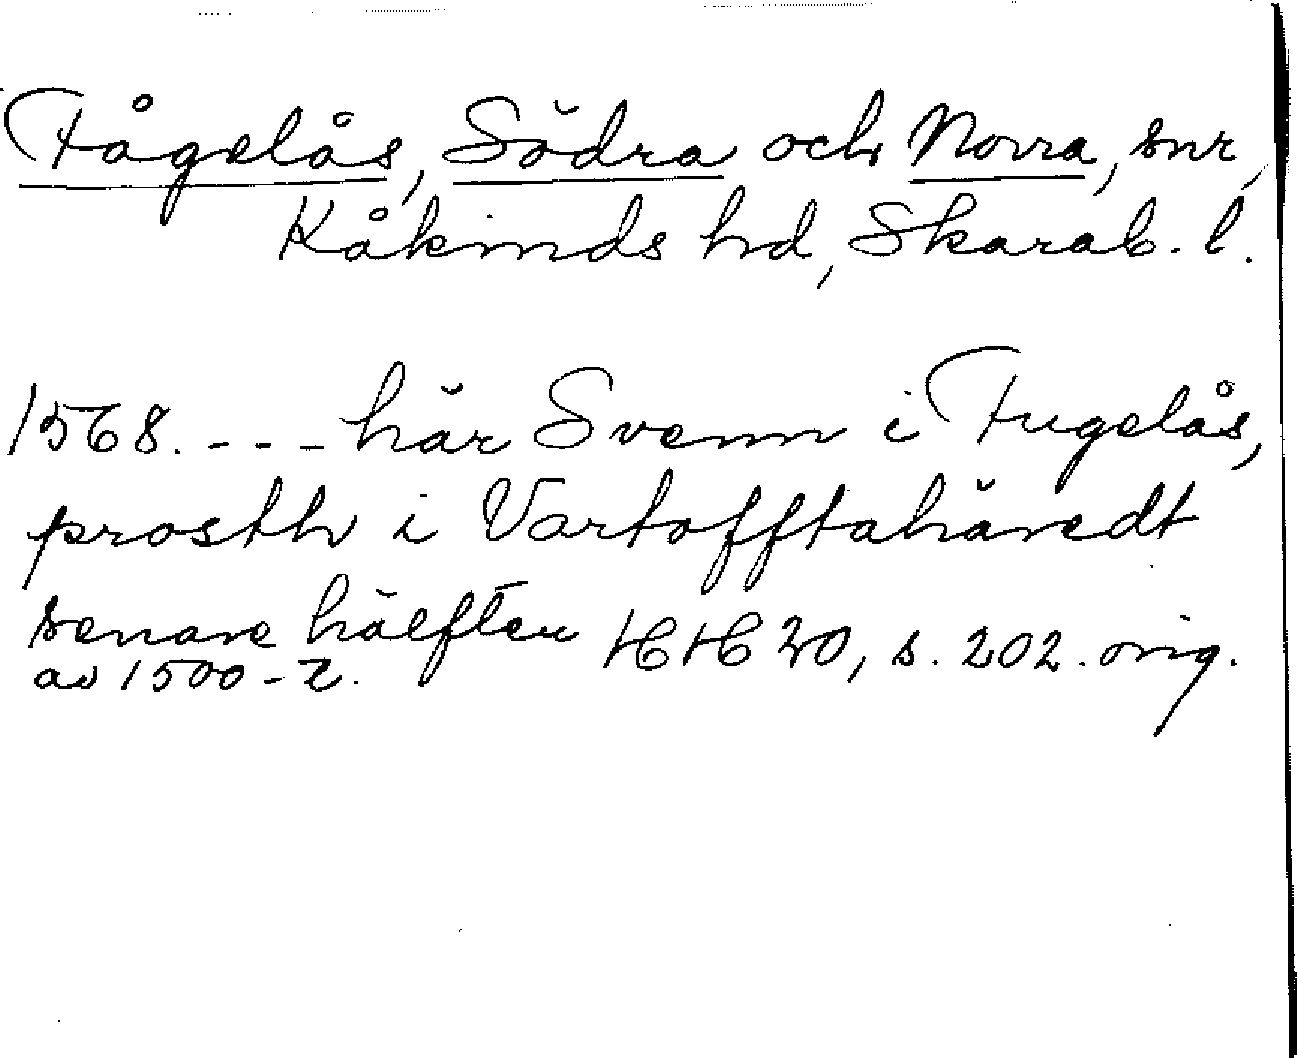 Fågelås, Södra och Norra, snr,
Kåkinds hd, Skarab. l.
1568. - - - här Svenn i Fugelås,
prosth i Vartofftahäredt
senare hälften HH 20, s. 202. orig.
av 1500-t.